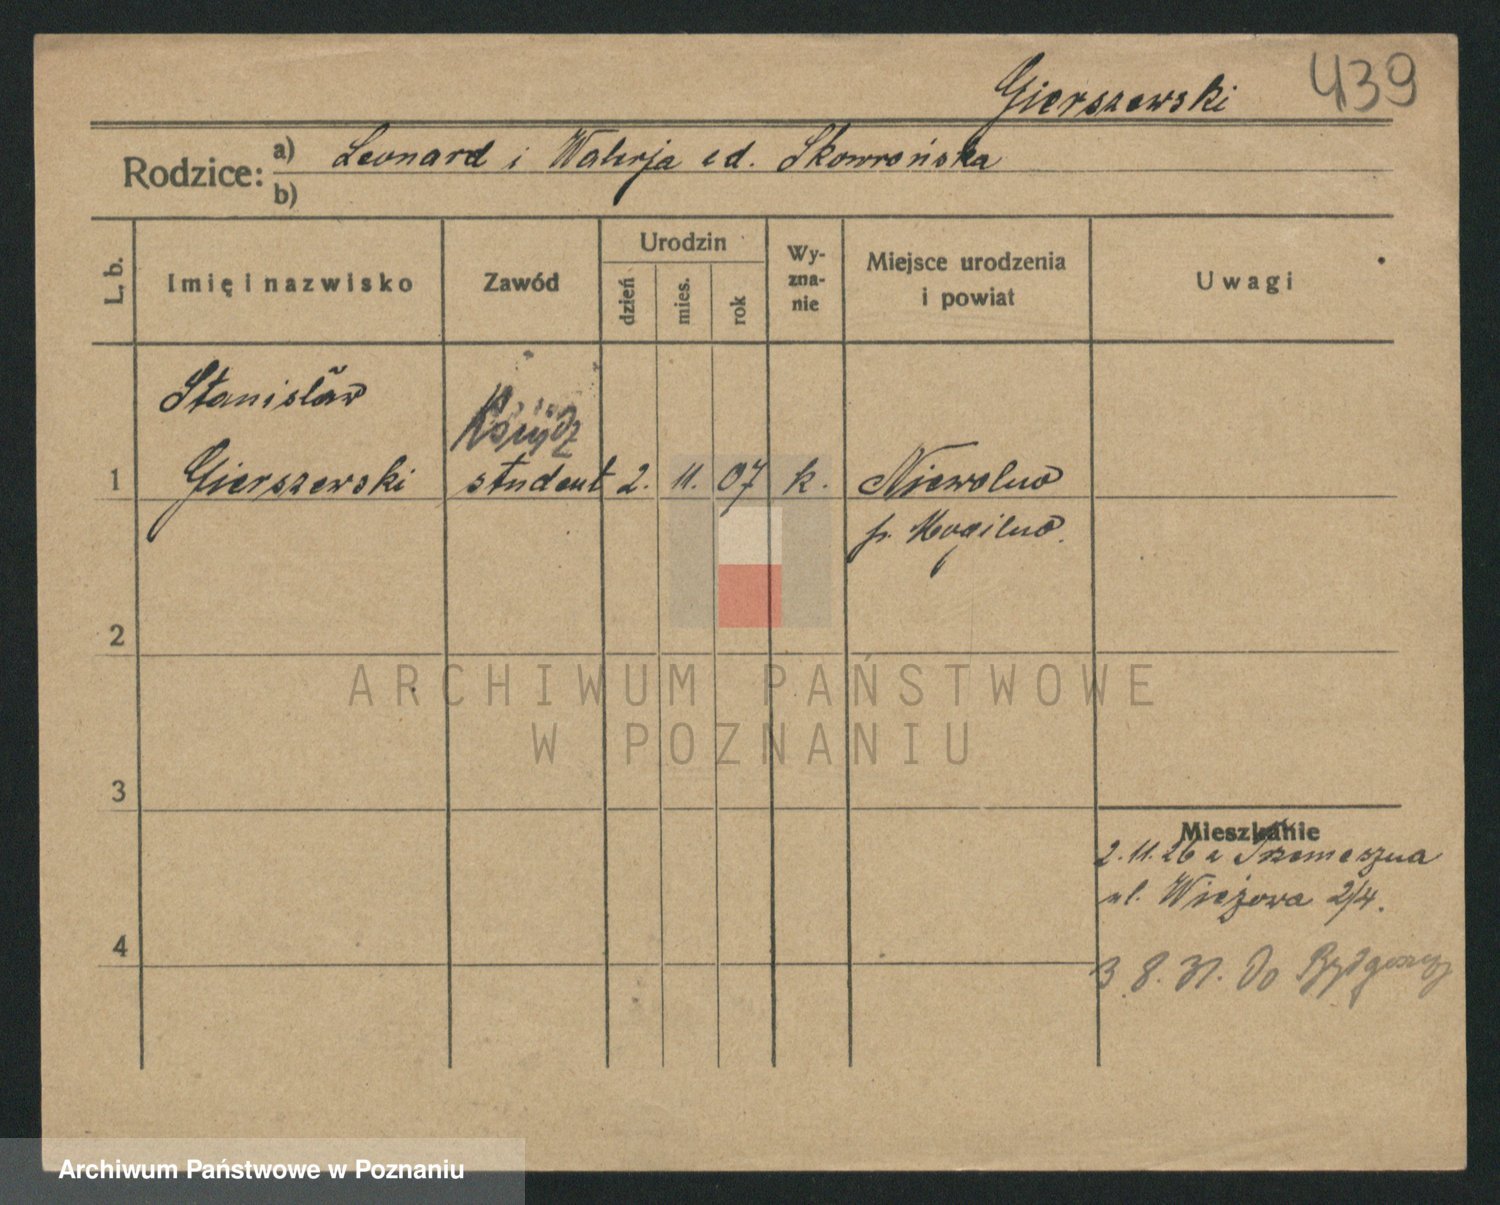 Gierszewski 439
Rodzice: a) Leonard i Walerja zd. Skowrońska
b)
L. b. Imię i nazwisko Zawód Urodzin dzień mies. rok Wy-zna-nie Miejsce urodzenia i powiat Uwagi
Stanisław
Ksiądz
1 Gierszewski student 2. 11. 07 k. Niewolno
p. Mogilno.
2
ARCHIWUM PAŃSTWOWE
W POZNANIU
3
Mieszkanie
2.11.26 z Trzemeszna
ul. Wieżowa 2/4.
4
3 8. 31. do Bydgoszczy
Archiwum Państwowe w Poznaniu